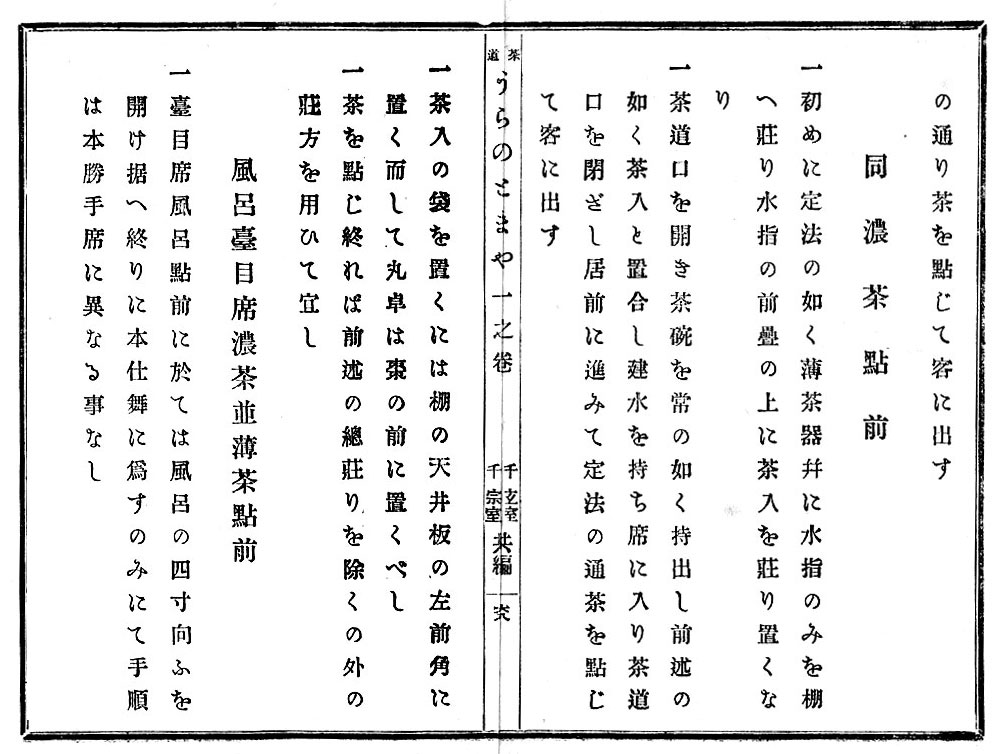 の通り茶を點じて客に出す
同濃茶點前
一初めに定法の如く薄茶器幷に水指のみを棚
へ莊り水指の前疊の上に茶入を莊り置くな
り
一茶道口を開き茶碗を常の如く持出し前述の
如く茶入と置合し建水を持ち席に入り茶道
口を閉ざし居前に進みて定法の通茶を點じ
て客に出す
茶道
うらのとまや一之卷
千玄室
千宗室
共編
一茶入の袋を置くには棚の天井板の左前角に
置く而して丸卓は棗の前に置くべし
一茶を點じ終れば前述の總莊りを除くの外の
莊方を用ひて宜し
風呂臺目席濃茶並薄茶點前
一臺目席風呂點前に於ては風呂の四寸向ふを
開け据へ終りに本仕舞に爲すのみにて手順
は本勝手席に異なる事なし